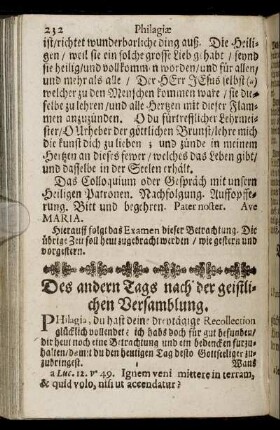 232 Philagiæ
ist/richtet wunderbarliche ding auß. Die Heili-
gen / weil sie ein solche grosse Lieb gehabt / seynd
sie heilig/und vollkommen worden/und für allen/
und mehr als alle / Der HErr JEsus selbst (a)
welcher zu den Menschen kommen ware / sie die-
selbe zu lehren/und alle Hertzen mit dieser Flam-
men anzuzünden. O du fürtrefflicher Lehrmei-
ster/O Urheber der göttlichen Brunst/lehre mich
die kunst dich zu lieben ; und zünde in meinem
Hertzen an dieses fewer / welches das Leben gibt/
und dasselbe in der Seelen erhält.
Das Colloquium oder Gespräch mit unsern
Heiligen Patronen. Nachfolgung. Auffopffe-
rung. Bitt und begehren. Pater noster. Ave
MARIA.
Hierauff folgt das Examen dieser Betrachtung. Die
übrige Zeit soll heut zugebracht werden / wie gestern und
vorgestern.
Des andern Tags nach der geistli-
chen Versamblung.
PHilagia, du hast deine dreytägige Recollection
glücklich vollendet ; ich habs doch für gut befunden/
dir heut noch eine Betrachtung und ein bedencken fürzu-
halten/damit du den heutigen Tag desto Gottseeliger zu-
zubringest.
a Luc. 12. v 49. Ignem veni mittere in terram,
& quid volo, nisi ut accendatur ?